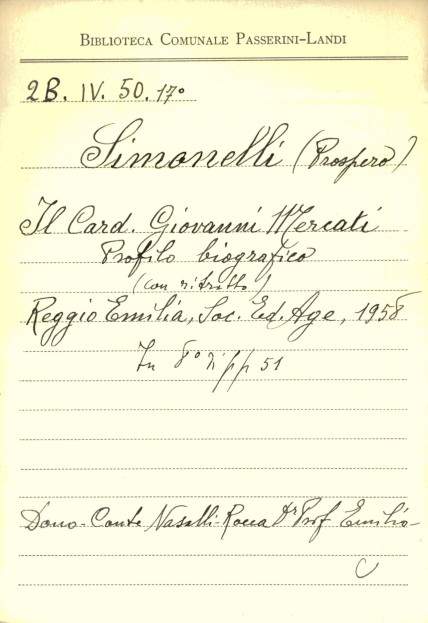 BIBLIOTECA COMUNALE PASSERINI-LANDI
2B. IV. 50. 17°
Simonelli (Prospero)
Il Card. Giovanni Mercati
Profilo biografico
(con ritratto)
Reggio Emilia, Soc. Ed. Age, 1958
In 8° pp 51
Dono-Conte Nasalli-Rocca Dr Prof Emilio-